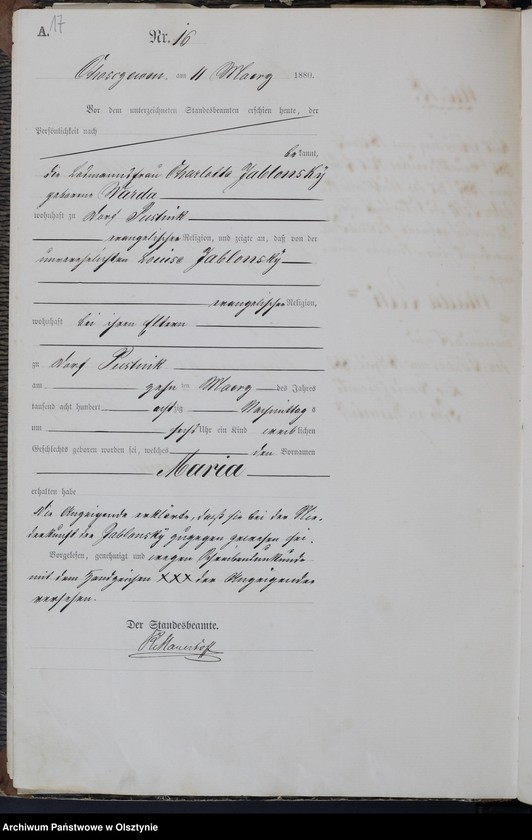 A. 17
Nr. 16
Choszewen, am 11 Maerz 1880.
Vor dem unterzeichneten Standesbeamten erschien heute, der
Persönlichkeit nach
bekannt,
die Losmannsfrau Charlotte Jablonsky
geborene Warda
wohnhaft zu Dorf Pustnik
evangelischer Religion, und zeigte an, daß von der
unverehelichten Louise Jablonsky
evangelischer Religion,
wohnhaft bei ihren Eltern
zu Dorf Pustnik
am zehn ten Maerz des Jahres
tausend acht hundert achtzig Nachmittag s
um sechs Uhr ein Kind weiblichen
Geschlechts geboren worden sei, welches den Vornamen
Maria
erhalten habe
Die Anzeigende erklärte, dass sie bei der Nie-
derkunft der Jablonsky zugegen gewesen sei.
Vorgelesen, genehmigt und wegen Schreibensunkunde
mit dem Handzeichen XXX der Anzeigenden
versehen.
Der Standesbeamte.
Archiwum Państwowe w Olsztynie